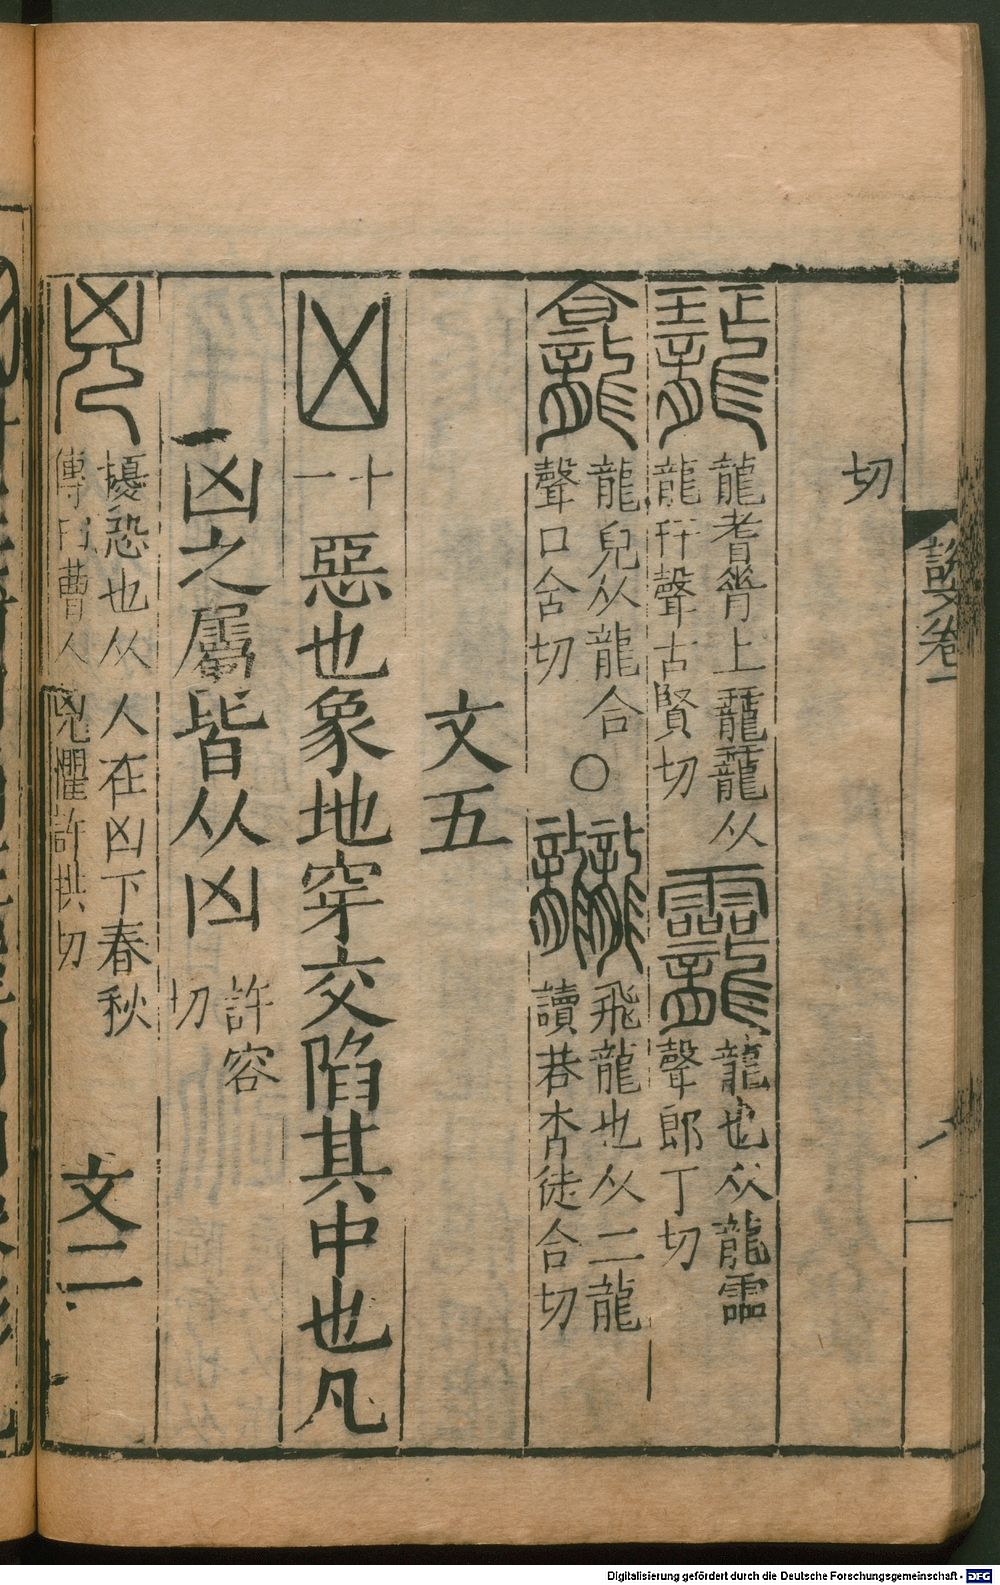 說文卷一
切
龍耆脊上龖龖从
龍幵聲古賢切
龗 龍也从龍霝
聲郎丁切
龕 龍皃从龍合
聲口含切
〇
龖 飛龍也从二龍
讀若沓徒合切
文五
凶 十一 惡也象地穿交陷其中也凡
凶之屬皆从凶 許容
切
兇 擾恐也从人在凶下春秋
傳曰曹人兇懼許拱切
文二
Digitalisierung gefördert durch die Deutsche Forschungsgemeinschaft - DFG